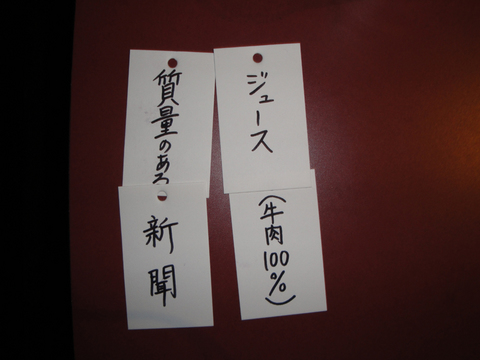 ジュース
(牛肉100%)
質量のある
新聞